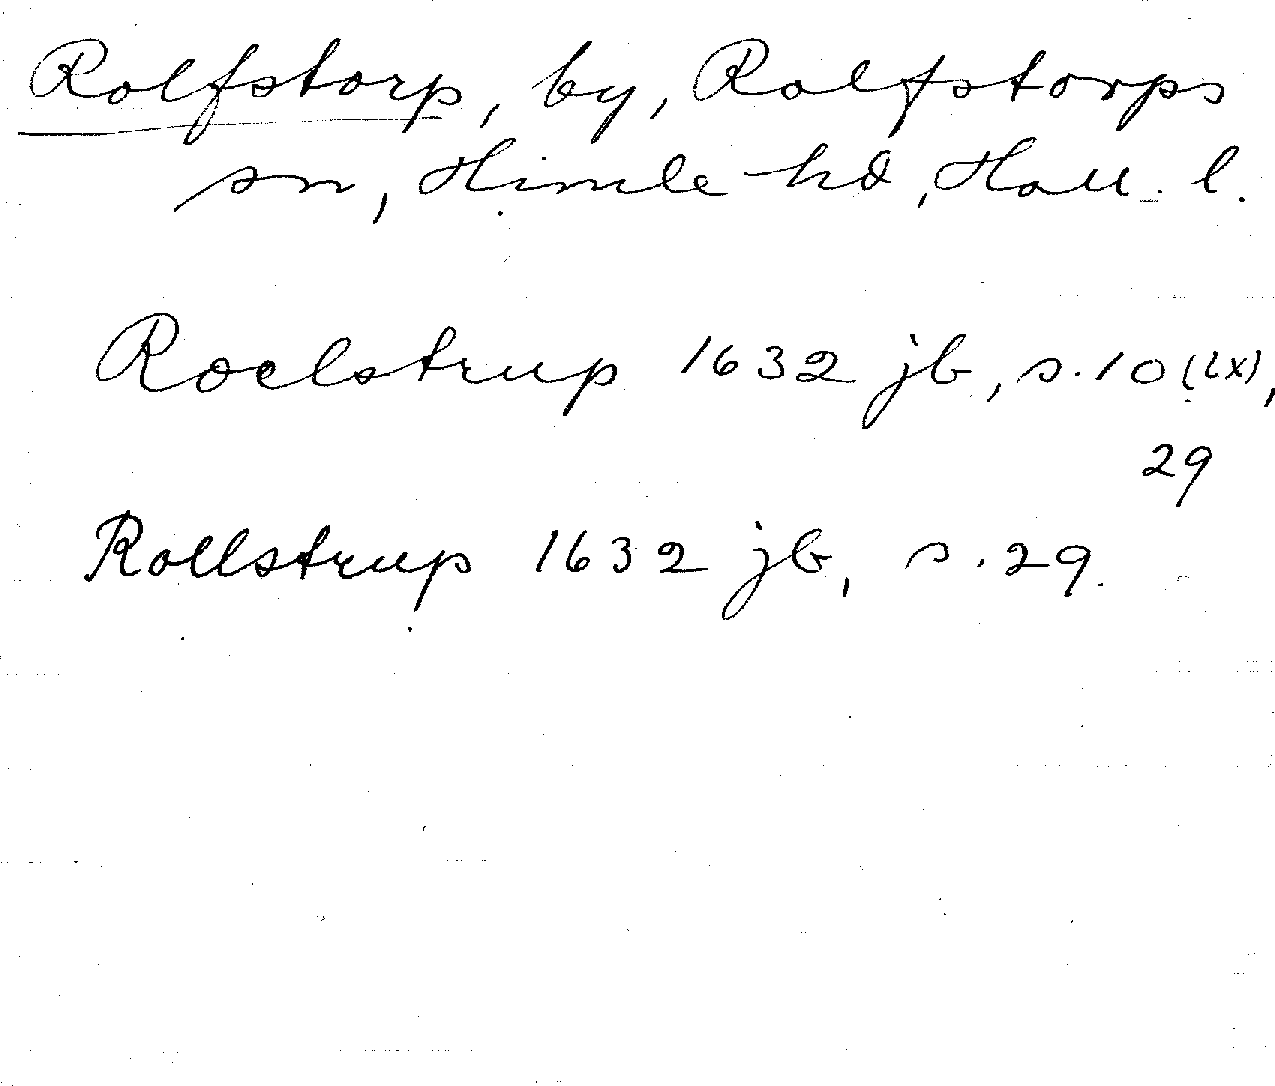 Rolfstorp, by, Rolfstorps
sn, Himle hd, Hall. l.
Roelstrup 1632 jb, s. 10 (2x),
29
Rollstrup 1632 jb, s. 29.